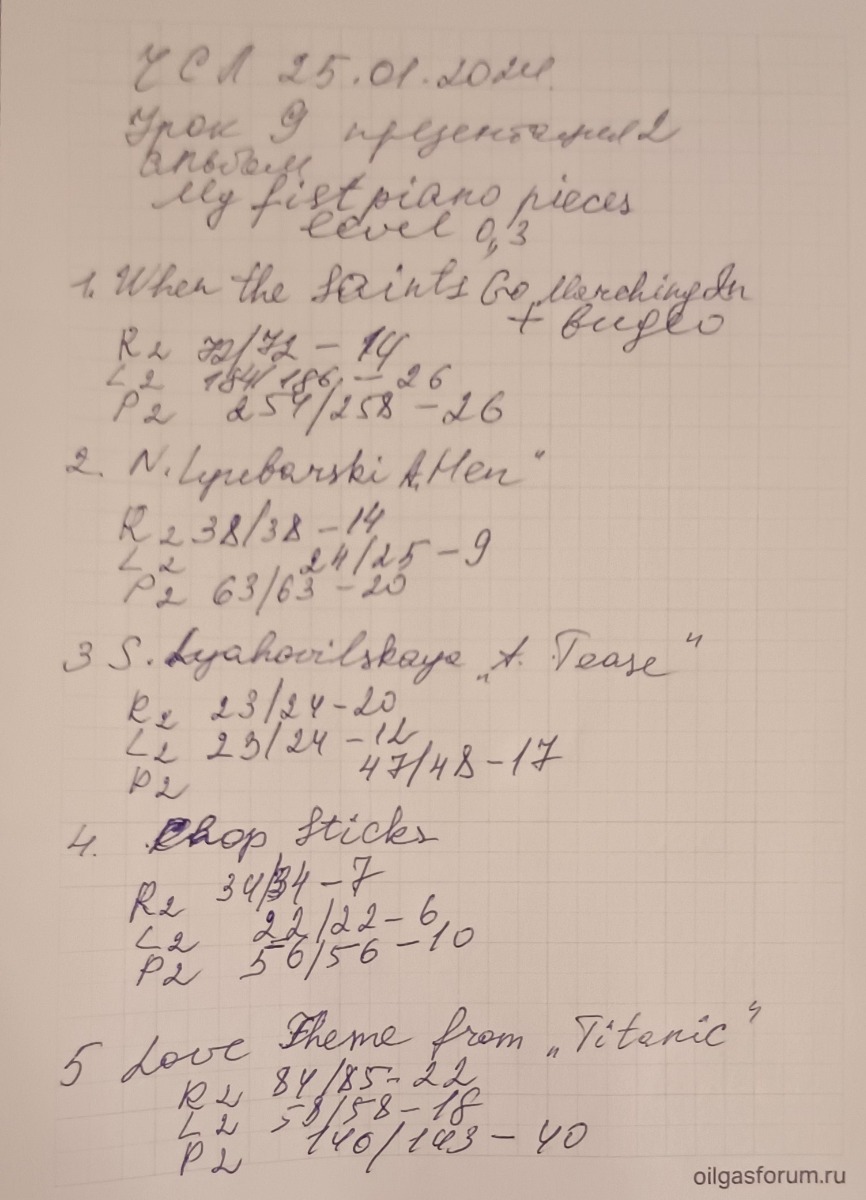 ЧСЛ 25.01.2024.
Урок 9 презентация 2
альбом
My fist piano pieces
level 0,3
1. When the Saints Go Marching In
+ видео
R2 72/72 – 14
L2 184/186 – 26
P2 254/258 – 26
2. N. Lyubarski A. Hen"
R2 38/38 – 14
L2 24/25 – 9
P2 63/63 – 20
3 S. Lyahovitskaya „A. Tease"
R2 23/24 – 20
L2 23/24 – 12
P2 47/48 – 17
4. Chop Sticks
R2 34/34 – 7
L2 22/22 – 6
P2 56/56 – 10
5 Love Theme from „Titanic"
R2 84/85 – 22
L2 58/58 – 18
P2 140/143 – 40
oilgasforum.ru